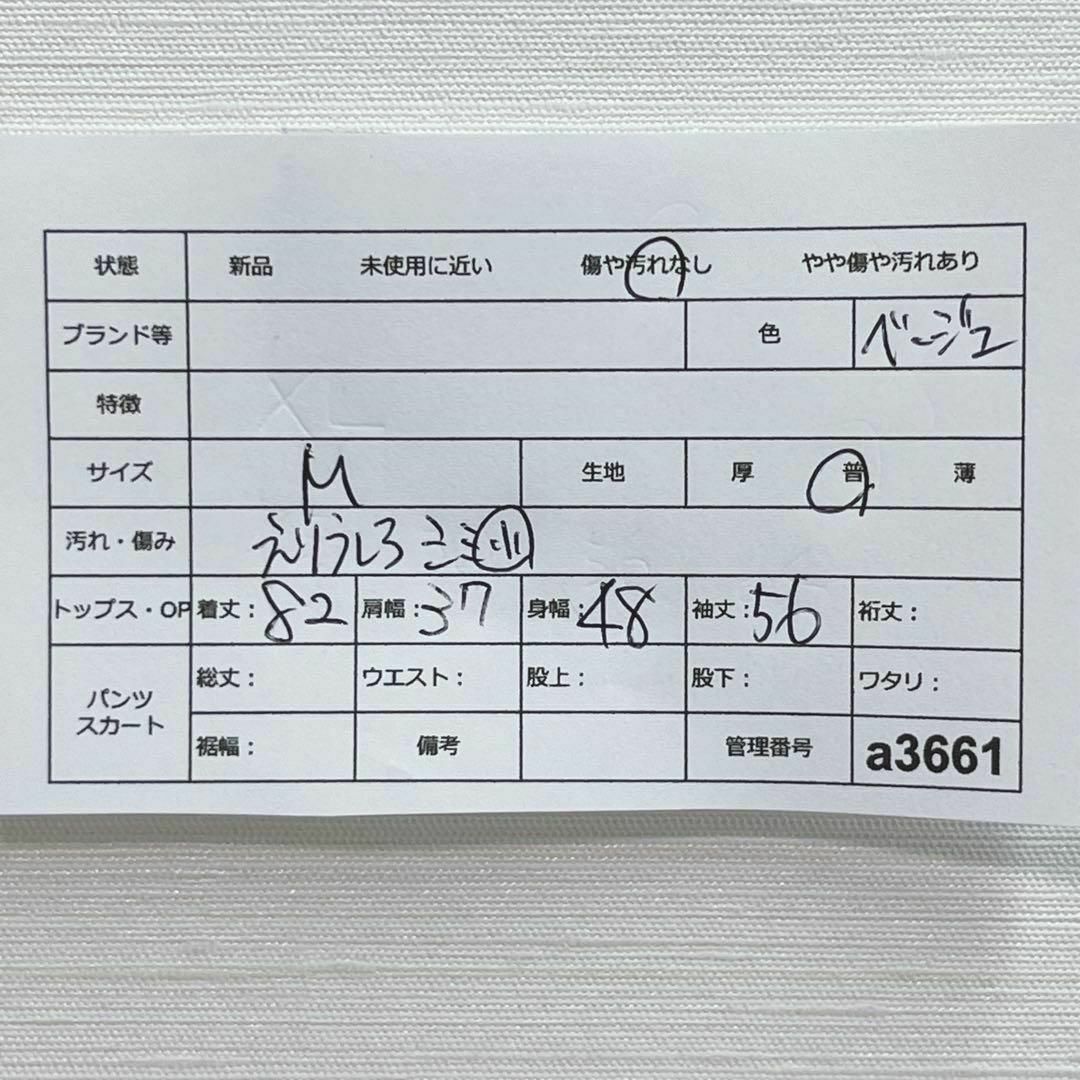 状態 新品 未使用に近い 傷や汚れなし やや傷や汚れあり
ブランド等 色 ベージュ
特徴
サイズ M 生地 厚 普 薄
汚れ・傷み えりうしろシミ小
トップス・OP 着丈：82 肩幅：37 身幅：48 袖丈：56 裄丈：
パンツ スカート 総丈： ウエスト： 股上： 股下： ワタリ：
裾幅： 備考 管理番号 a3661